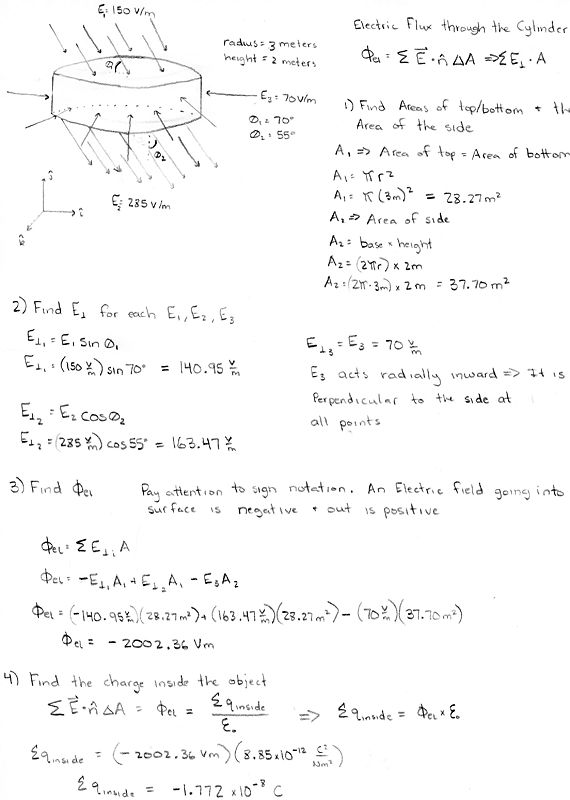 E₁: 150 V/m
Θ₁
radius = 3 meters
height = 2 meters
E₃ = 70 V/m
Θ₁ = 70°
Θ₂ = 55°
Θ₂
E₂: 285 V/m
Electric Flux through the Cylinder
Φel = Σ E⃗ · n̂ ΔA ⇒ ΣE⊥ · A
1) Find Areas of top/bottom + th
Area of the side
A₁ ⇒ Area of top = Area of bottom
A₁ = πr²
A₁ = π(3m)² = 28.27m²
A₂ ⇒ Area of side
A₂ = base × height
A₂ = (2πr) × 2m
A₂ = (2π·3m) × 2m = 37.70 m²
2) Find E⊥ for each E₁, E₂, E₃
E⊥₁ = E₁ sin Θ₁
E⊥₁ = (150 V/m) sin 70° = 140.95 V/m
E⊥₂ = E₂ cos Θ₂
E⊥₂ = (285 V/m) cos 55° = 163.47 V/m
E⊥₃ = E₃ = 70 V/m
E₃ acts radially inward ⇒ It is
Perpendicular to the side at
all points
3) Find Φel Pay attention to sign notation. An Electric field going into
surface is negative + out is positive
Φel = ΣE⊥ᵢ A
Φel = -E⊥₁A₁ + E⊥₂A₁ - E₃A₂
Φel = (-140.95 V/m)(28.27m²) + (163.47 V/m)(28.27m²) - (70 V/m)(37.70 m²)
Φel = - 2002.36 Vm
4) Find the charge inside the object
Σ E⃗ · n̂ ΔA = Φel = Σq inside / ε₀ ⇒ Σq inside = Φel × ε₀
Σq inside = (- 2002.36 Vm)(8.85 × 10⁻¹² C²/Nm²)
Σq inside = -1.772 × 10⁻⁸ C